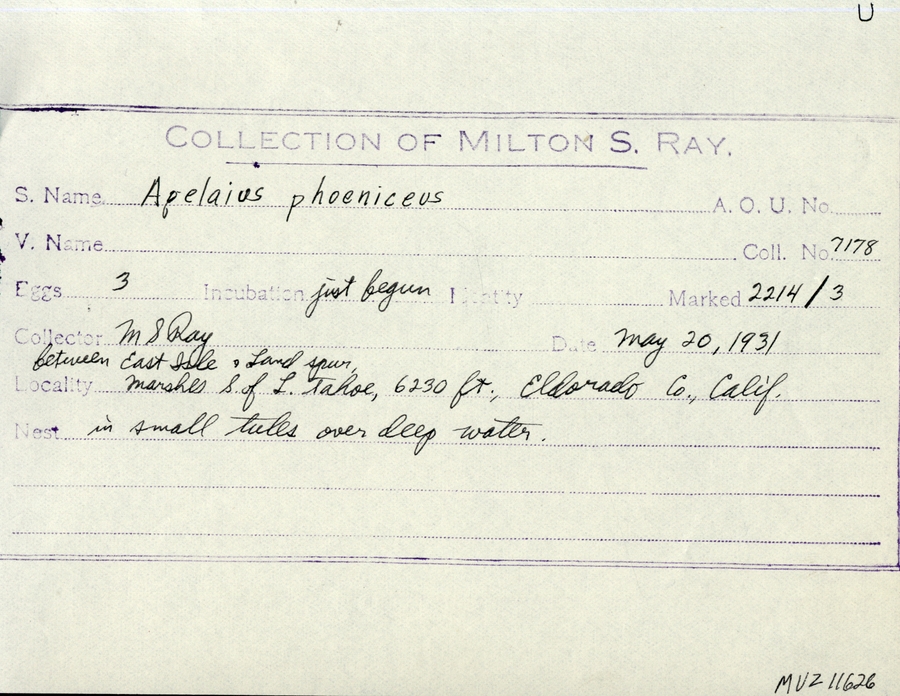 U
COLLECTION OF MILTON S. RAY.
S. Name Agelaius phoeniceus A. O. U. No.
V. Name Coll. No. 7178
Eggs 3 Incubation just begun Identity Marked 2214/3
Collector M S Ray Date May 20, 1931
between East Isle & Land spur,
Locality Marshes S of L. Tahoe, 6230 ft., Eldorado Co., Calif.
Nest in small tules over deep water.
MVZ 11626